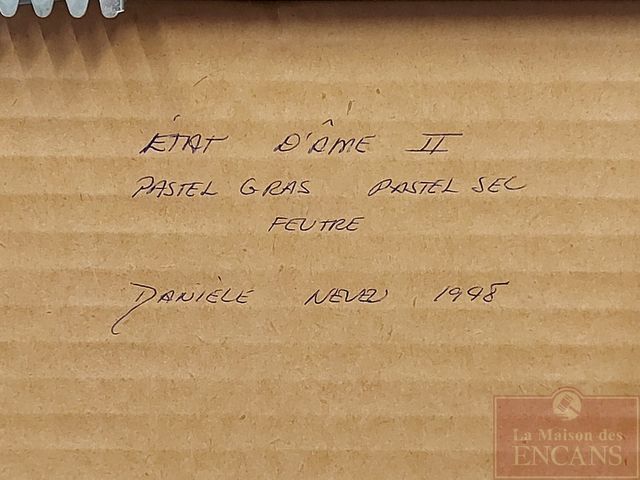 ÉTAT D'ÂME II
PASTEL GRAS PASTEL SEC
FEUTRE
DANIÈLE NEVEU 1998
La Maison des
ENCANS